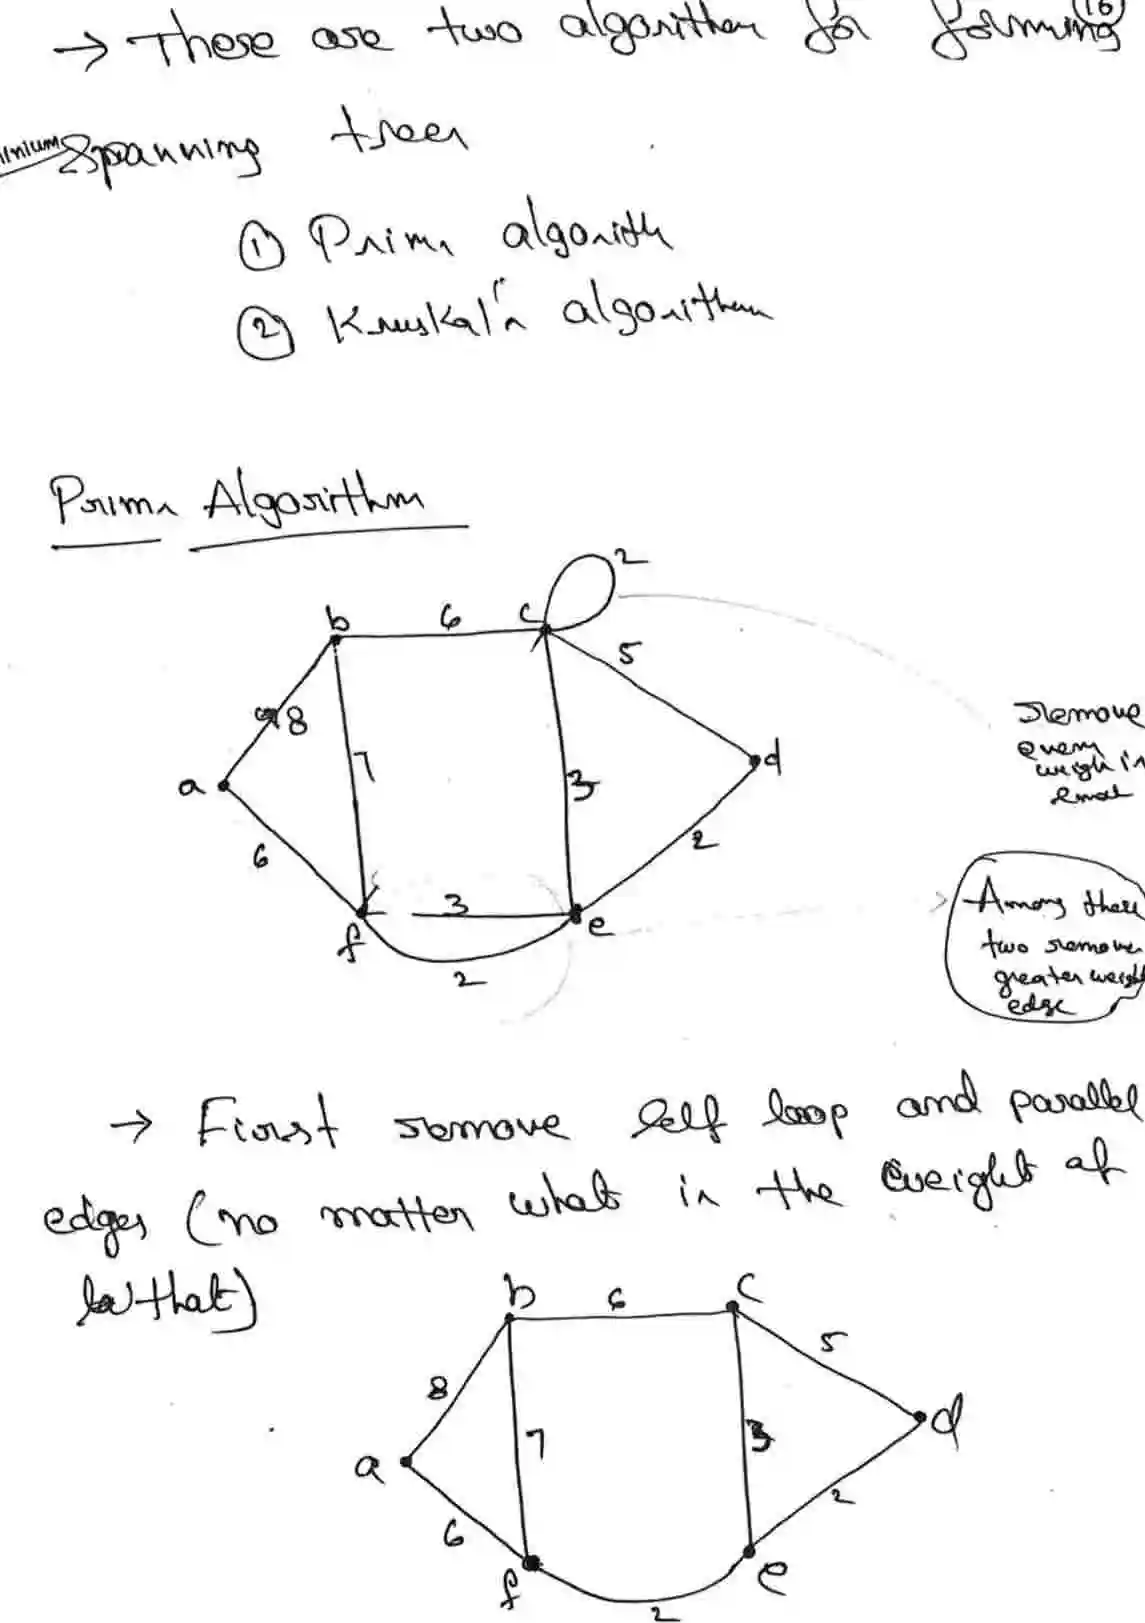 16
→ These are two algorithm for forming
Spanning trees
① Prims algorith
② Kruskal's algorithm
Prims Algorithm
2
b 6 c
5
8
a 7 3 d
6 2
3
f e
2
Remove
even
weigh is
small
Among these
two remove
greater weight
edge
→ First remove self loop and parallel
edges (no matter what is the weight of
that)
b 6 c
5
8
7 3 d
a
6 2
f e
2